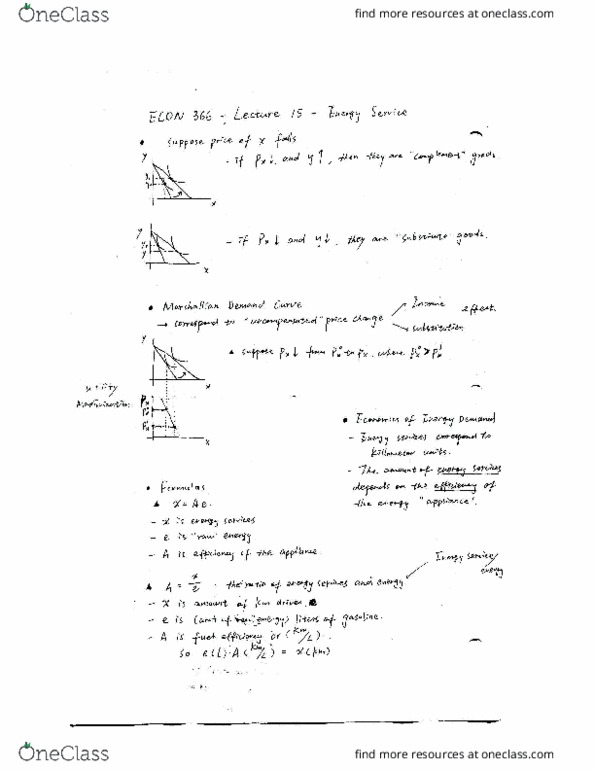 OneClass
find more resources at oneclass.com
ECON 366 - Lecture 15 - Energy Service
• Suppose price of x falls
- If Px↓ and y↑, then they are "complement" goods.
y
x
- If Px↓ and y↓, they are "substitute" goods.
y
x
• Marshallian Demand Curve
→ correspond to "uncompensated" price change
Income
substitution
effect.
▲ suppose Px↓ from Px⁰ to Px', where Px⁰ > Px'
x
Px
x
• Economics of Energy Demand
- Energy services correspond to
kilometer units.
- The amount of energy services
depends on the efficiency of
the energy "appliance".
• Formulas
▲ x = Ae.
- x is energy services
- e is "raw" energy
- A is efficiency of the appliance.
▲ A = x/e . the ratio of energy services and energy
Energy service/
energy
- x is amount of km driven.
- e is (amt of energy) liters of gasoline.
- A is fuel efficiency or (km/L).
so e(L) · A(km/L) = x(km)
OneClass
find more resources at oneclass.com